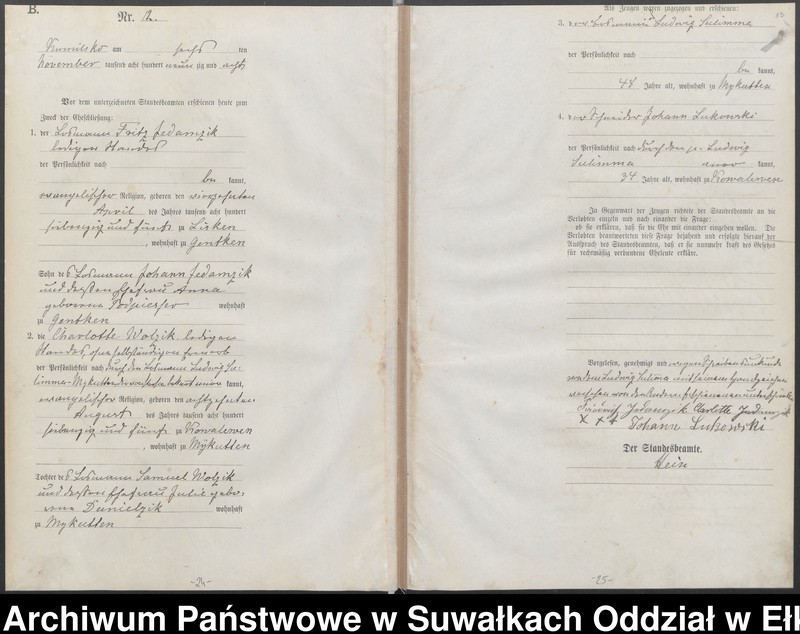 B.
Nr. 12.
Kumilsko am sechs ten
November tausend acht hundert neun zig und acht
Vor dem unterzeichneten Standesbeamten erschienen heute zum
Zweck der Eheschließung:
1. der Losmann Fritz Jedamzik
ledigen Standes
der Persönlichkeit nach
be kannt,
evangelischer Religion, geboren den vierzehnten
April des Jahres tausend acht hundert
siebenzig und fünf zu Lisken
, wohnhaft zu Gentken
Sohn des Losmann Johann Jedamzik
und dessen Ehefrau Anna
geborene wohnhaft
zu Gentken
2. die Charlotte Wolzik ledigen
Standes, ohne selbständigen Erwerb
der Persönlichkeit nach durch den Losmann Ludwig Su-
limma-Mykutten kannt,
evangelischer Religion, geboren den achtzehnten
August des Jahres tausend acht hundert
siebenzig und fünf zu Kowalewen
, wohnhaft zu Mykutten
Tochter des Losmann Samuel Wolzik
und dessen Ehefrau Julie gebo-
rene Danielzik wohnhaft
zu Mykutten
-24-
Als Zeugen waren zugezogen und erschienen:
13
3. der Losmann Ludwig Sulimma
der Persönlichkeit nach
be kannt,
44 Jahre alt, wohnhaft zu Mykutten
4. der Schneider Johann Lukowski
der Persönlichkeit nach durch den p. Ludwig
Sulimma kannt,
34 Jahre alt, wohnhaft zu Kowalewen
In Gegenwart der Zeugen richtete der Standesbeamte an die
Verlobten einzeln und nach einander die Frage:
ob sie erklären, daß sie die Ehe mit einander eingehen wollen. Die
Verlobten beantworteten diese Frage bejahend und erfolgte hierauf der
Ausspruch des Standesbeamten, daß er sie nunmehr kraft des Gesetzes
für rechtmäßig verbundene Eheleute erkläre.
Vorgelesen, genehmigt und wegen Schreibensunkunde
von dem Ludwig Sulima mit seinem Handzeichen
versehen von den Anderen unterschrieben
Jedamzik Charlotte Jedamzik
X X +
Johann Lukowski
Der Standesbeamte.
Hein
-25-
Archiwum Państwowe w Suwałkach Oddział w Ełk